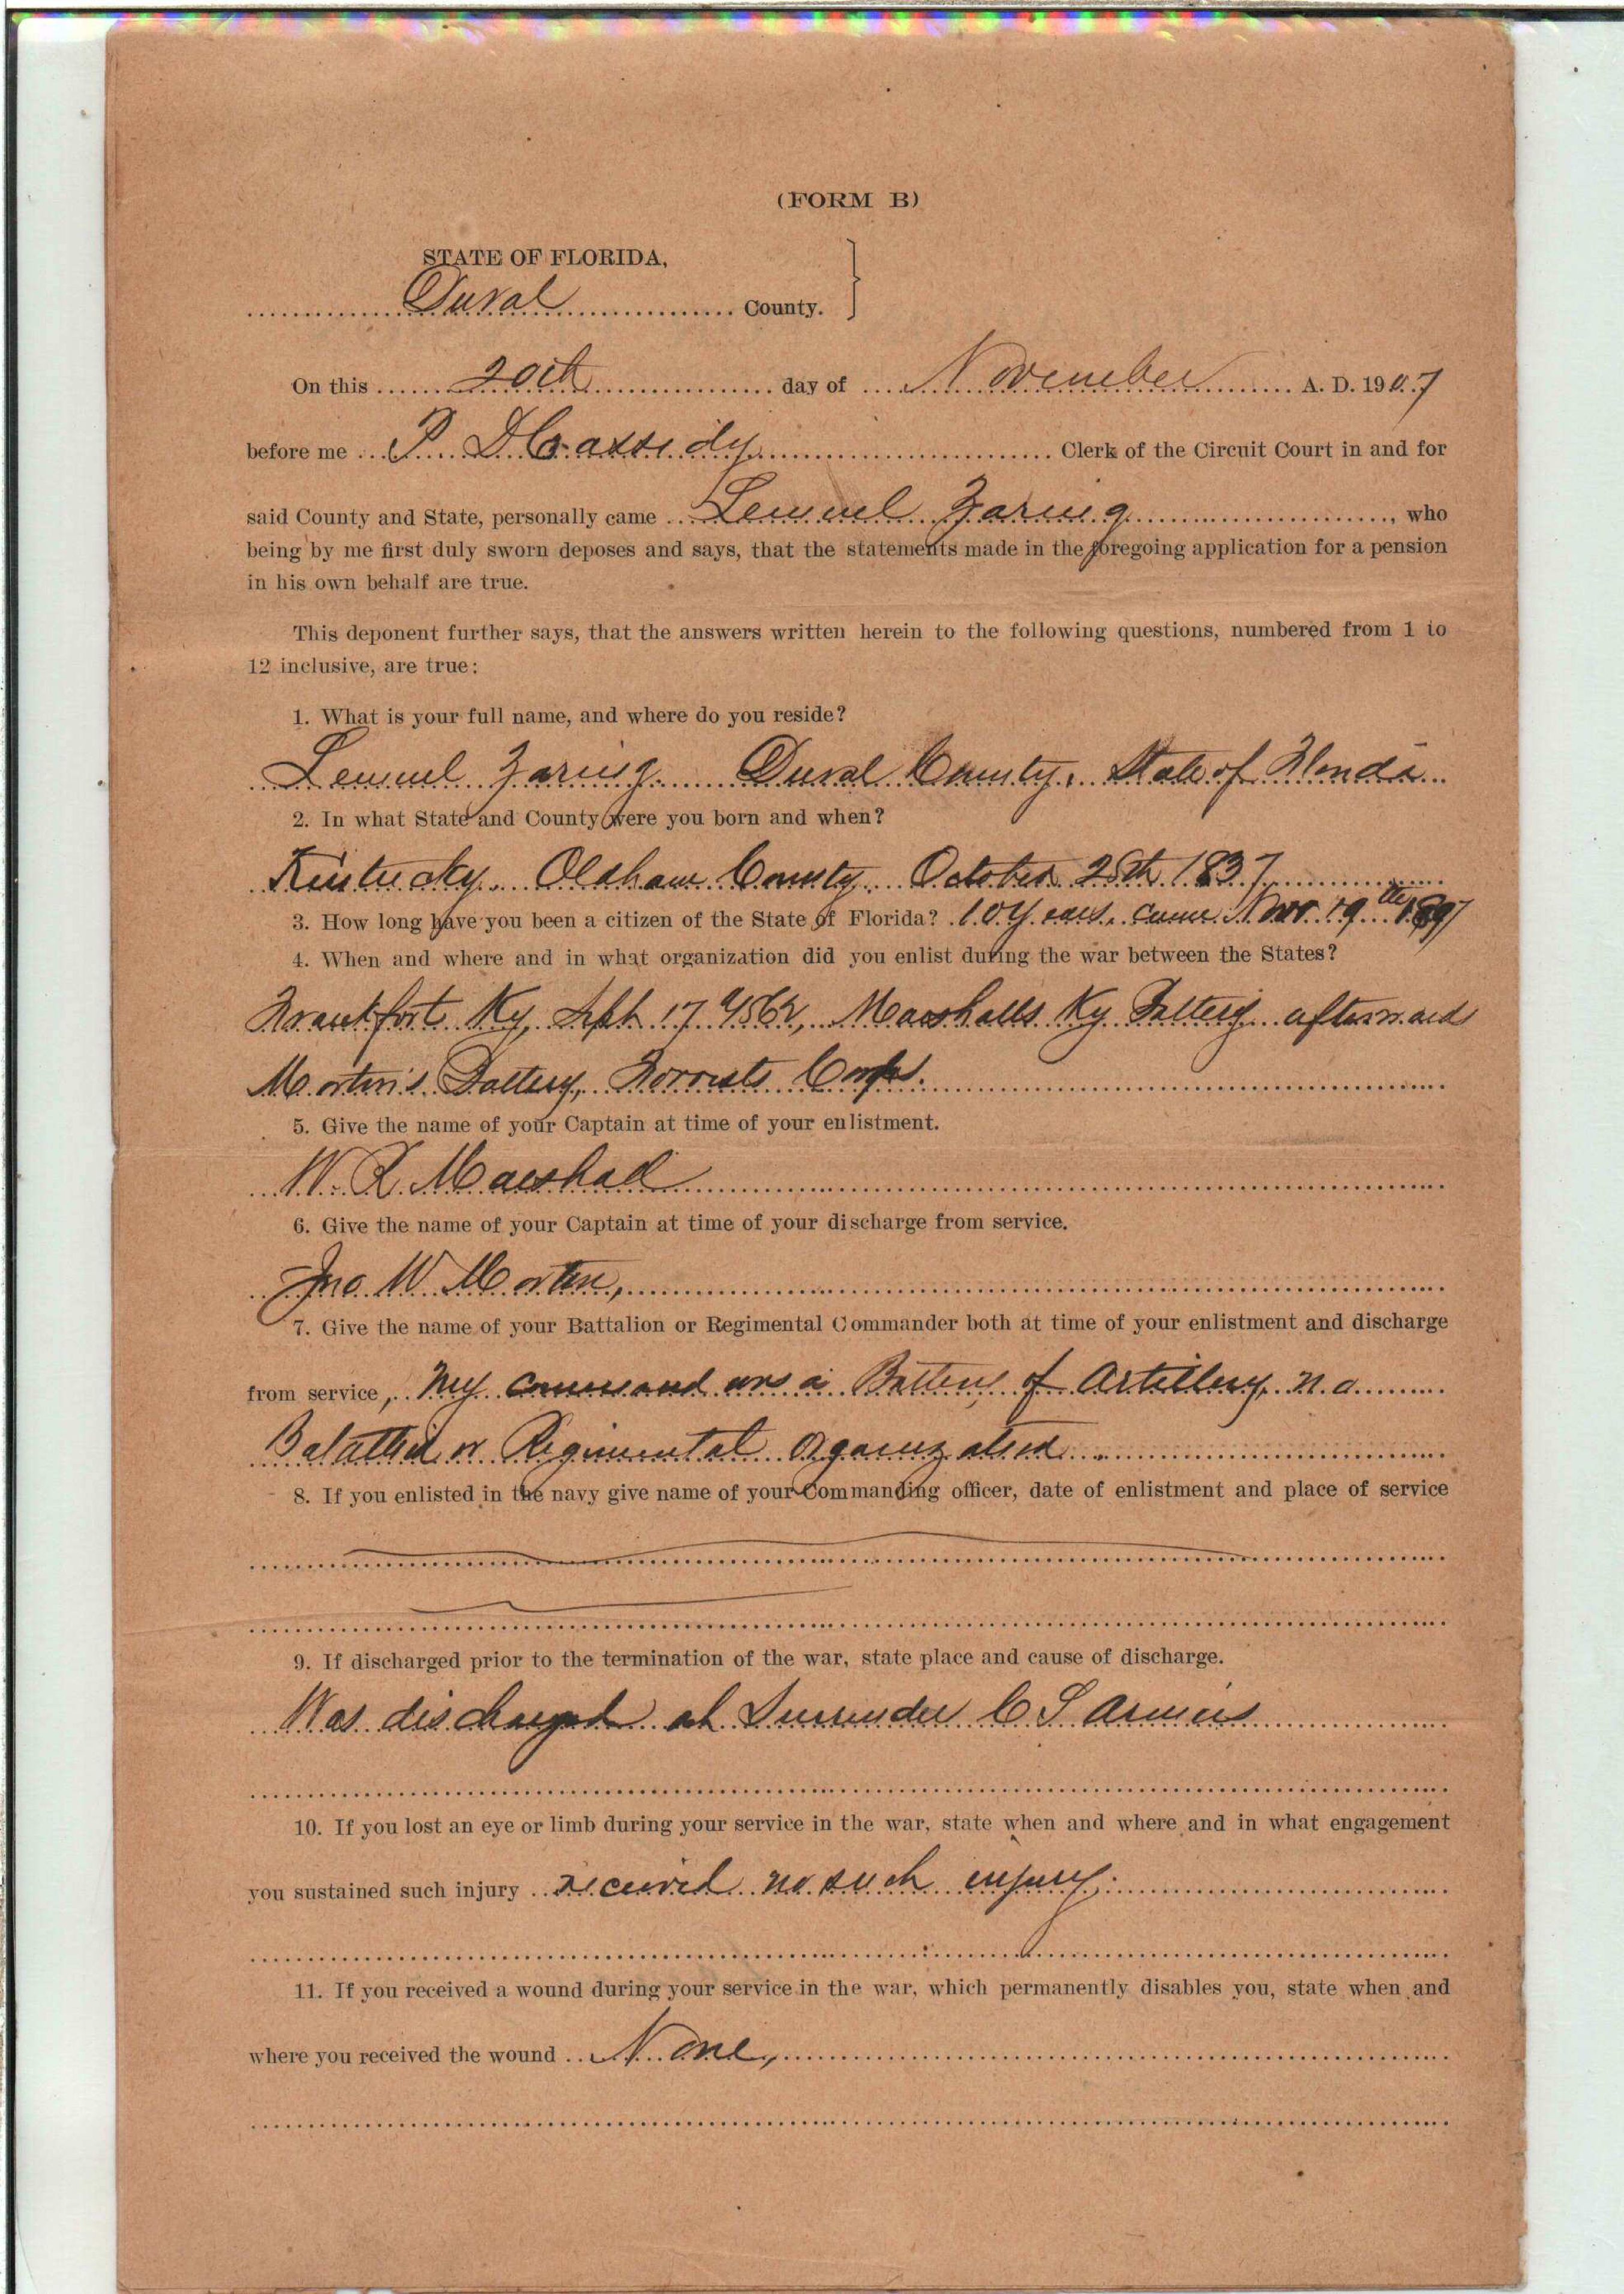 (FORM B)
STATE OF FLORIDA,
Duval County.
On this 20th day of November A. D. 1907
before me P. D Cassidy Clerk of the Circuit Court in and for
said County and State, personally came Lemuel Zaring, who
being by me first duly sworn deposes and says, that the statements made in the foregoing application for a pension
in his own behalf are true.
This deponent further says, that the answers written herein to the following questions, numbered from 1 to
12 inclusive, are true:
1. What is your full name, and where do you reside?
Lemuel Zaring Duval County, State of Florida
2. In what State and County were you born and when?
Kentucky Oldham County October 28th 1837
3. How long have you been a citizen of the State of Florida? 10 Years. Came Nov. 19th 1897
4. When and where and in what organization did you enlist during the war between the States?
Frankfort Ky, Sept 17 1862, Marshalls Ky Battery afterward
Morton's Battery, Forrests Corps.
5. Give the name of your Captain at time of your enlistment.
W. R. Marshall
6. Give the name of your Captain at time of your discharge from service.
Jno. W. Morton,
7. Give the name of your Battalion or Regimental Commander both at time of your enlistment and discharge
from service, My command was a Battery of Artillery, no
or Regimental organization
8. If you enlisted in the navy give name of your Commanding officer, date of enlistment and place of service
9. If discharged prior to the termination of the war, state place and cause of discharge.
Was discharged at Surrender C S Armies
10. If you lost an eye or limb during your service in the war, state when and where and in what engagement
you sustained such injury received no such injury.
11. If you received a wound during your service in the war, which permanently disables you, state when and
where you received the wound None,